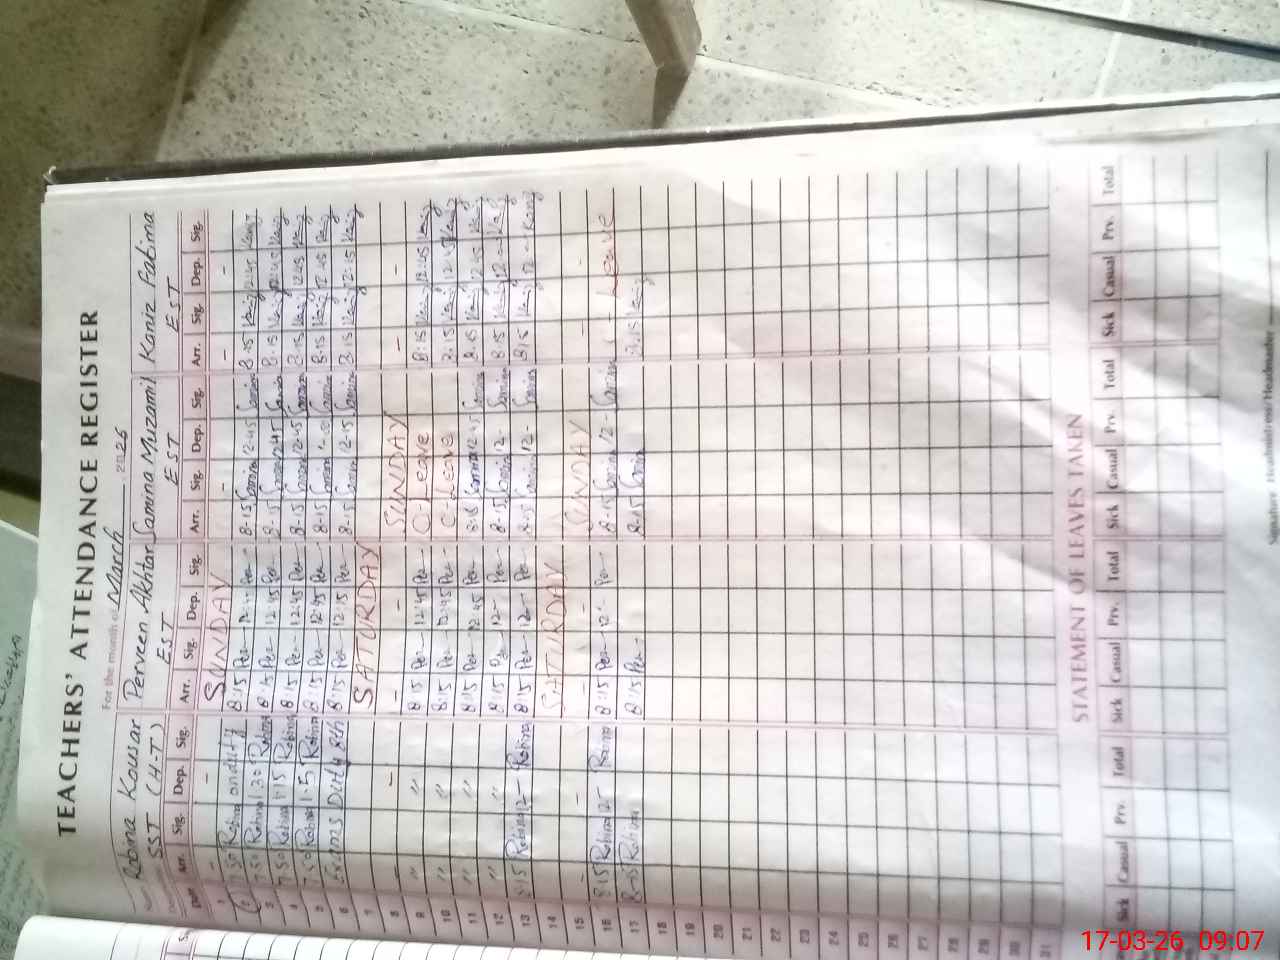 TEACHERS' ATTENDANCE REGISTER
For the month of March 2026
Robina Kousar Perveen Akhtar Samina Muzamil Kaniz Fatima
SST (H-T) EST EST EST
Date Arr. Sig. Dep. Sig. Arr. Sig. Dep. Sig. Arr. Sig. Dep. Sig. Arr. Sig. Dep. Sig.
1 - - SUNDAY - - - -
2 7:50 Robina on duty 8:15 Per 12:45 Per 8:15 Samina 12:45 Samina 8:15 Kaniz 12:45 Kaniz
3 7:50 Robina 1:30 Robina 8:15 Per 12:45 Per 8:15 Samina 12:45 Samina 8:15 Kaniz 12:45 Kaniz
4 7:50 Robina 1:15 Robina 8:15 Per 12:45 Per 8:15 Samina 12:45 Samina 8:15 Kaniz 12:45 Kaniz
5 7:50 Robina 1:15 Robina 8:15 Per 12:45 Per 8:15 Samina Samina 8:15 Kaniz 12:45 Kaniz
6 Exams Duty 8th 8:15 Per 12:15 Per 8:15 Samina 12:15 Samina 8:15 Kaniz 12:15 Kaniz
7 SATURDAY
8 - - - - SUNDAY - -
9 〃 〃 8:15 Per 12:45 Per C-Leave 8:15 Kaniz 12:45 Kaniz
10 〃 〃 8:15 Per 12:45 Per C-Leave 8:15 Kaniz 12:45 Kaniz
11 〃 〃 8:15 Per 12:45 Per 8:15 Samina 12:45 Samina 8:15 Kaniz 12:45 Kaniz
12 〃 〃 8:15 Per 12- Per 8:15 Samina 12- Samina 8:15 Kaniz 12- Kaniz
13 8:15 Robina 12- Robina 8:15 Per 12- Per 8:15 Samina 12- Samina 8:15 Kaniz 12- Kaniz
14 SATURDAY
15 - - - SUNDAY - -
16 8:15 Robina 12- Robina 8:15 Per 12- Per 8:15 Samina 12- Samina Leave
17 Robina 8:15 Per 8:15 Samina 8:15 Kaniz
18
19
20
21
22
23
24
25
26
27
28
29
30
31
STATEMENT OF LEAVES TAKEN
Sick Casual Prv. Total Sick Casual Prv. Total Sick Casual Prv. Total Sick Casual Prv. Total
Signature Headmistress/Headmaster
17-03-26 09:07